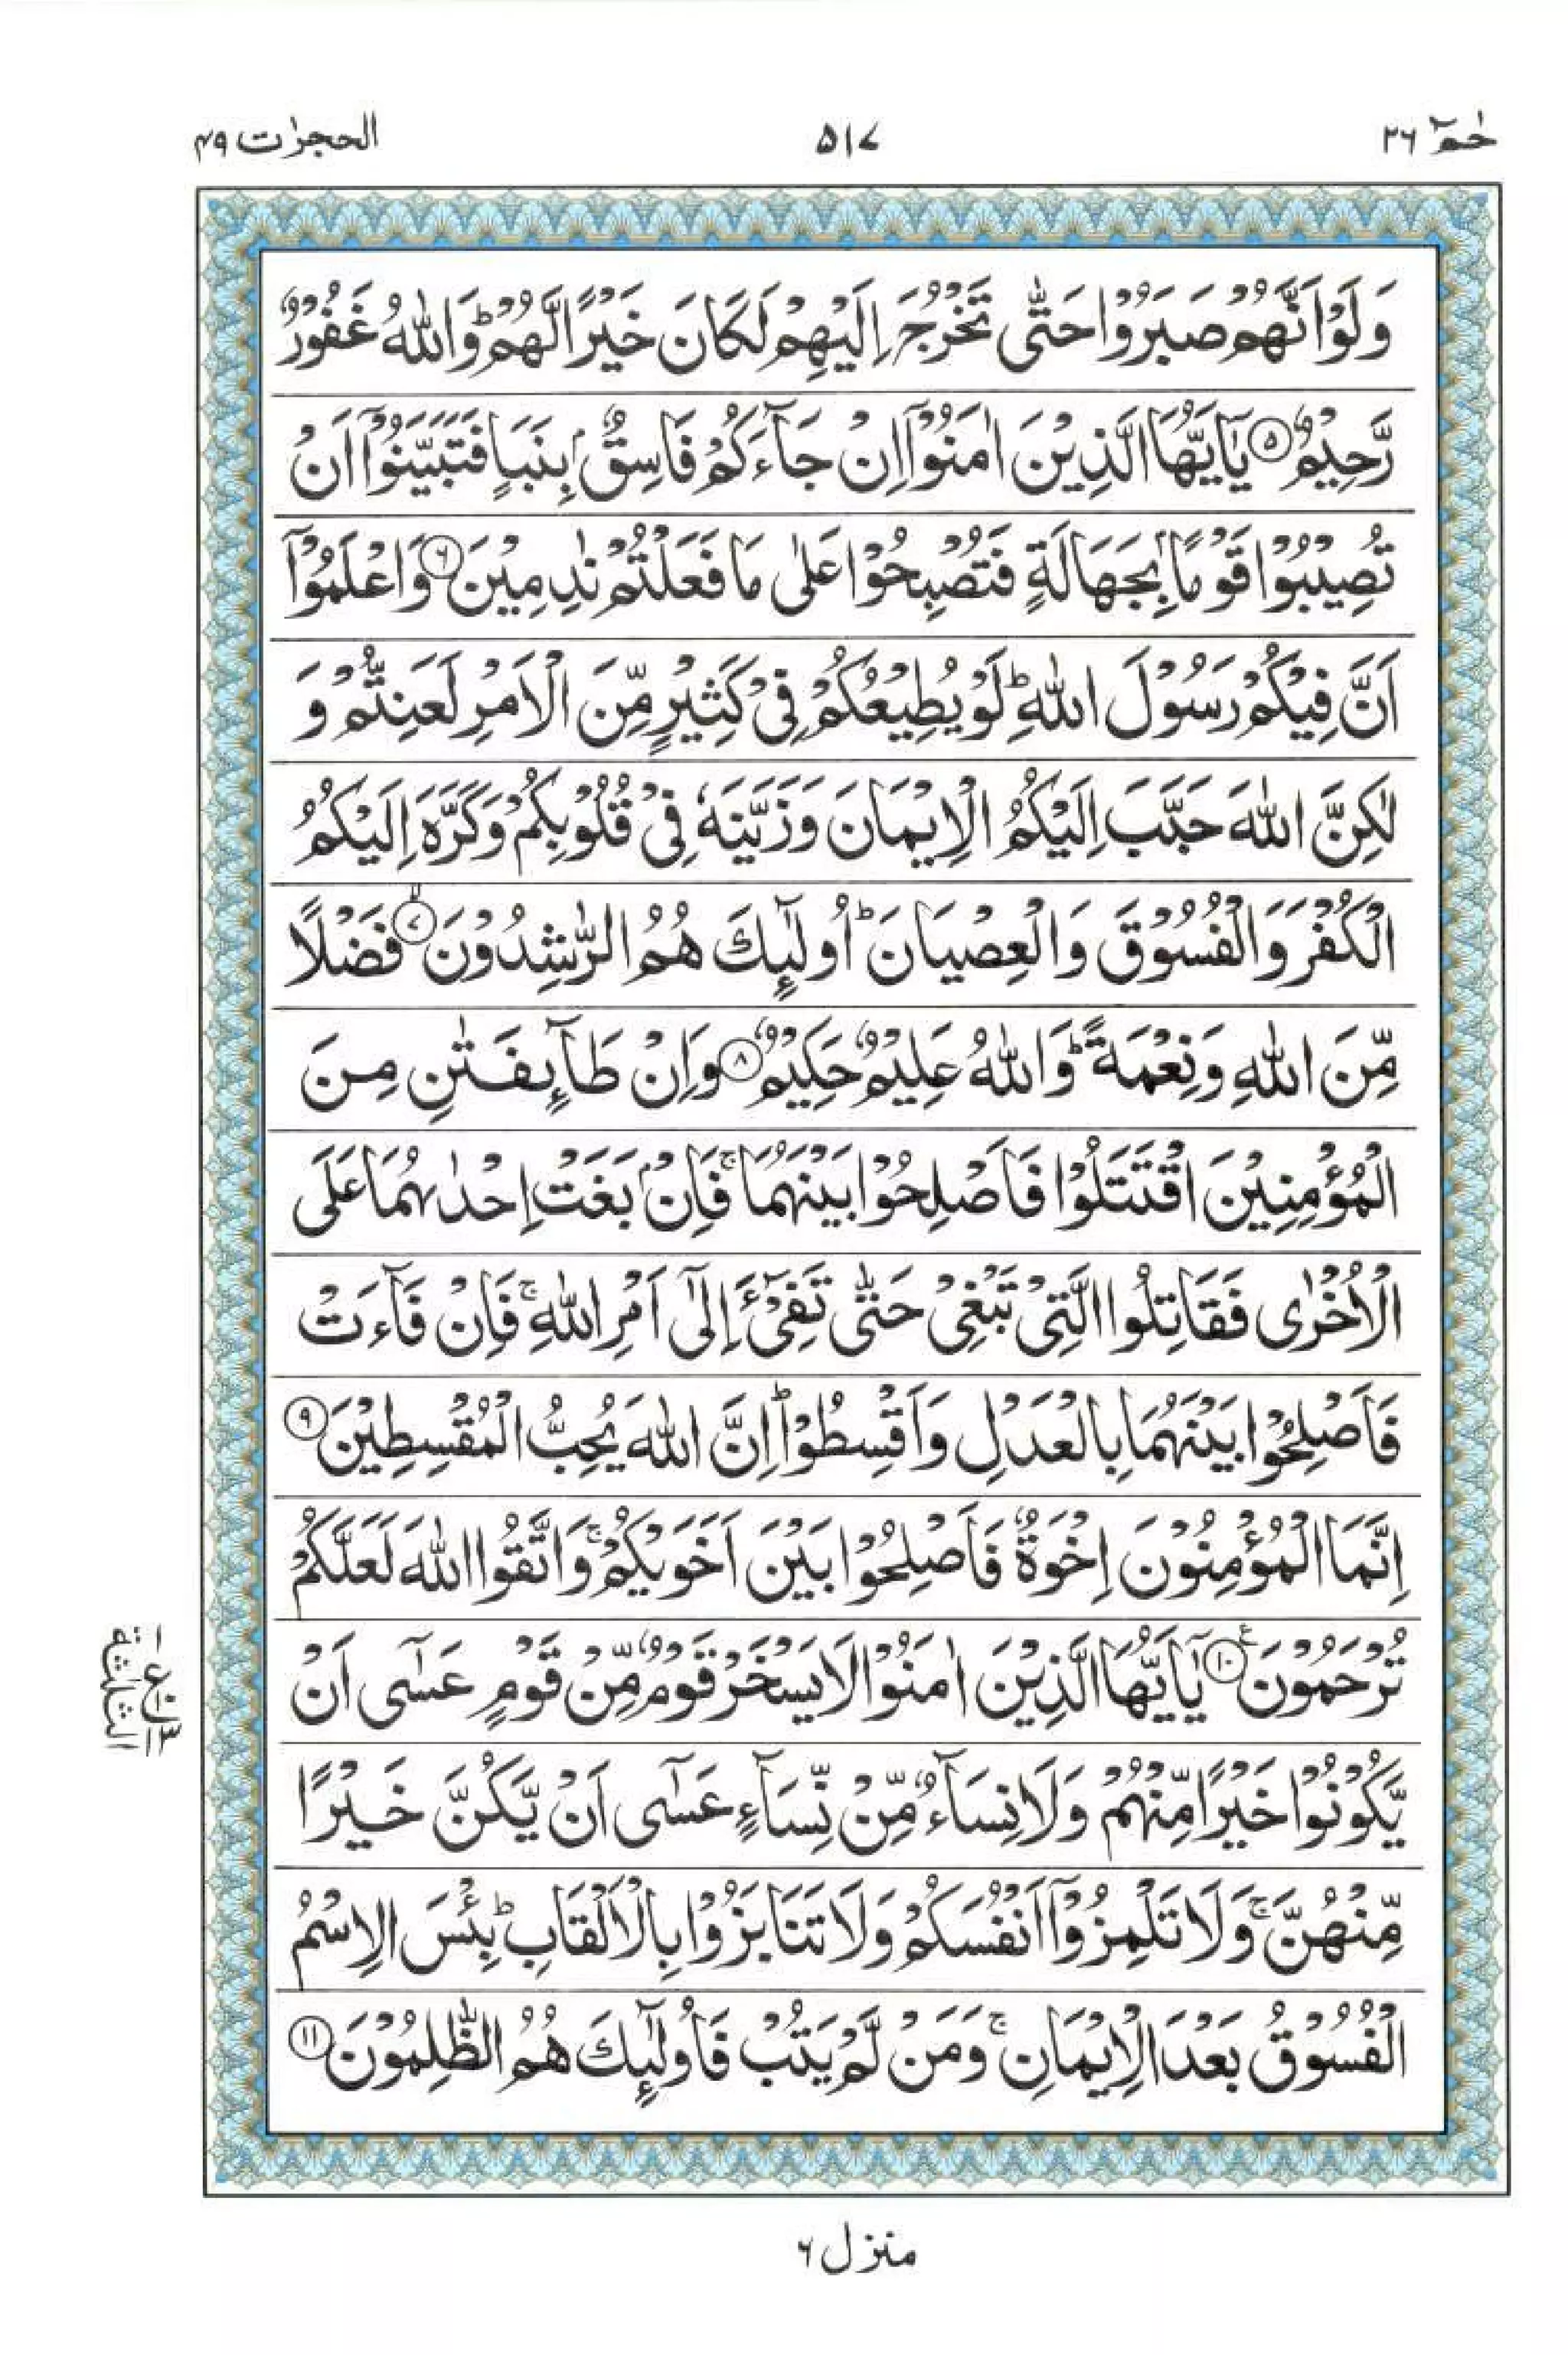 حٰمٓ ٢٦
٥١٧
الحجرٰت ٤٩
وَلَوْ اَنَّهُمْ صَبَرُوْا حَتّٰى تَخْرُجَ اِلَيْهِمْ لَكَانَ خَيْرًا لَّهُمْ ؕ وَاللّٰهُ غَفُوْرٌ
رَّحِيْمٌ ۝٥ يٰۤاَيُّهَا الَّذِيْنَ اٰمَنُوْۤا اِنْ جَآءَكُمْ فَاسِقٌۢ بِنَبَاٍ فَتَبَيَّنُوْۤا اَنْ
تُصِيْبُوْا قَوْمًاۢ بِجَهَالَةٍ فَتُصْبِحُوْا عَلٰى مَا فَعَلْتُمْ نٰدِمِيْنَ ۝٦ وَاعْلَمُوْۤا
اَنَّ فِيْكُمْ رَسُوْلَ اللّٰهِ ؕ لَوْ يُطِيْعُكُمْ فِيْ كَثِيْرٍ مِّنَ الْاَمْرِ لَعَنِتُّمْ وَ
لٰكِنَّ اللّٰهَ حَبَّبَ اِلَيْكُمُ الْاِيْمَانَ وَزَيَّنَهٗ فِيْ قُلُوْبِكُمْ وَكَرَّهَ اِلَيْكُمُ
الْكُفْرَ وَالْفُسُوْقَ وَالْعِصْيَانَ ؕ اُولٰٓئِكَ هُمُ الرّٰشِدُوْنَ ۝٧ۙ فَضْلًا
مِّنَ اللّٰهِ وَنِعْمَةً ؕ وَاللّٰهُ عَلِيْمٌ حَكِيْمٌ ۝٨ وَاِنْ طَآئِفَتٰنِ مِنَ
الْمُؤْمِنِيْنَ اقْتَتَلُوْا فَاَصْلِحُوْا بَيْنَهُمَا ۚ فَاِنْۢ بَغَتْ اِحْدٰىهُمَا عَلَى
الْاُخْرٰى فَقَاتِلُوا الَّتِيْ تَبْغِيْ حَتّٰى تَفِيْٓءَ اِلٰٓى اَمْرِ اللّٰهِ ۚ فَاِنْ فَآءَتْ
فَاَصْلِحُوْا بَيْنَهُمَا بِالْعَدْلِ وَاَقْسِطُوْا ؕ اِنَّ اللّٰهَ يُحِبُّ الْمُقْسِطِيْنَ ۝٩
اِنَّمَا الْمُؤْمِنُوْنَ اِخْوَةٌ فَاَصْلِحُوْا بَيْنَ اَخَوَيْكُمْ ۚ وَاتَّقُوا اللّٰهَ لَعَلَّكُمْ
تُرْحَمُوْنَ ۝١٠ۧ يٰۤاَيُّهَا الَّذِيْنَ اٰمَنُوْا لَا يَسْخَرْ قَوْمٌ مِّنْ قَوْمٍ عَسٰٓى اَنْ
يَّكُوْنُوْا خَيْرًا مِّنْهُمْ وَلَا نِسَآءٌ مِّنْ نِّسَآءٍ عَسٰٓى اَنْ يَّكُنَّ خَيْرًا
مِّنْهُنَّ ۚ وَلَا تَلْمِزُوْۤا اَنْفُسَكُمْ وَلَا تَنَابَزُوْا بِالْاَلْقَابِ ؕ بِئْسَ الِاسْمُ
الْفُسُوْقُ بَعْدَ الْاِيْمَانِ ۚ وَمَنْ لَّمْ يَتُبْ فَاُولٰٓئِكَ هُمُ الظّٰلِمُوْنَ ۝١١
الثلٰثة
منزل ٦